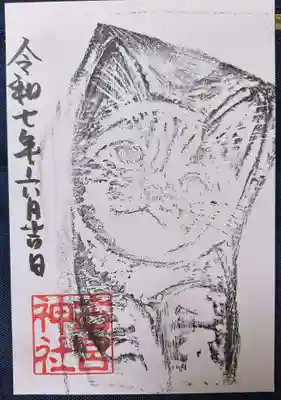 令和七年六月吉日
神社